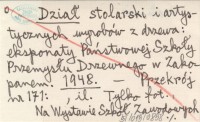 Dział stolarski i artys-
tycznych wyrobów z drzewa:
eksponaty Państwowej Szkoły
Przemysłu Drzewnego w Zako-
panem. 1948. — Przekrój
na 171. — il. Tylko fot.
Na Wystawie Szkół Zawodowych